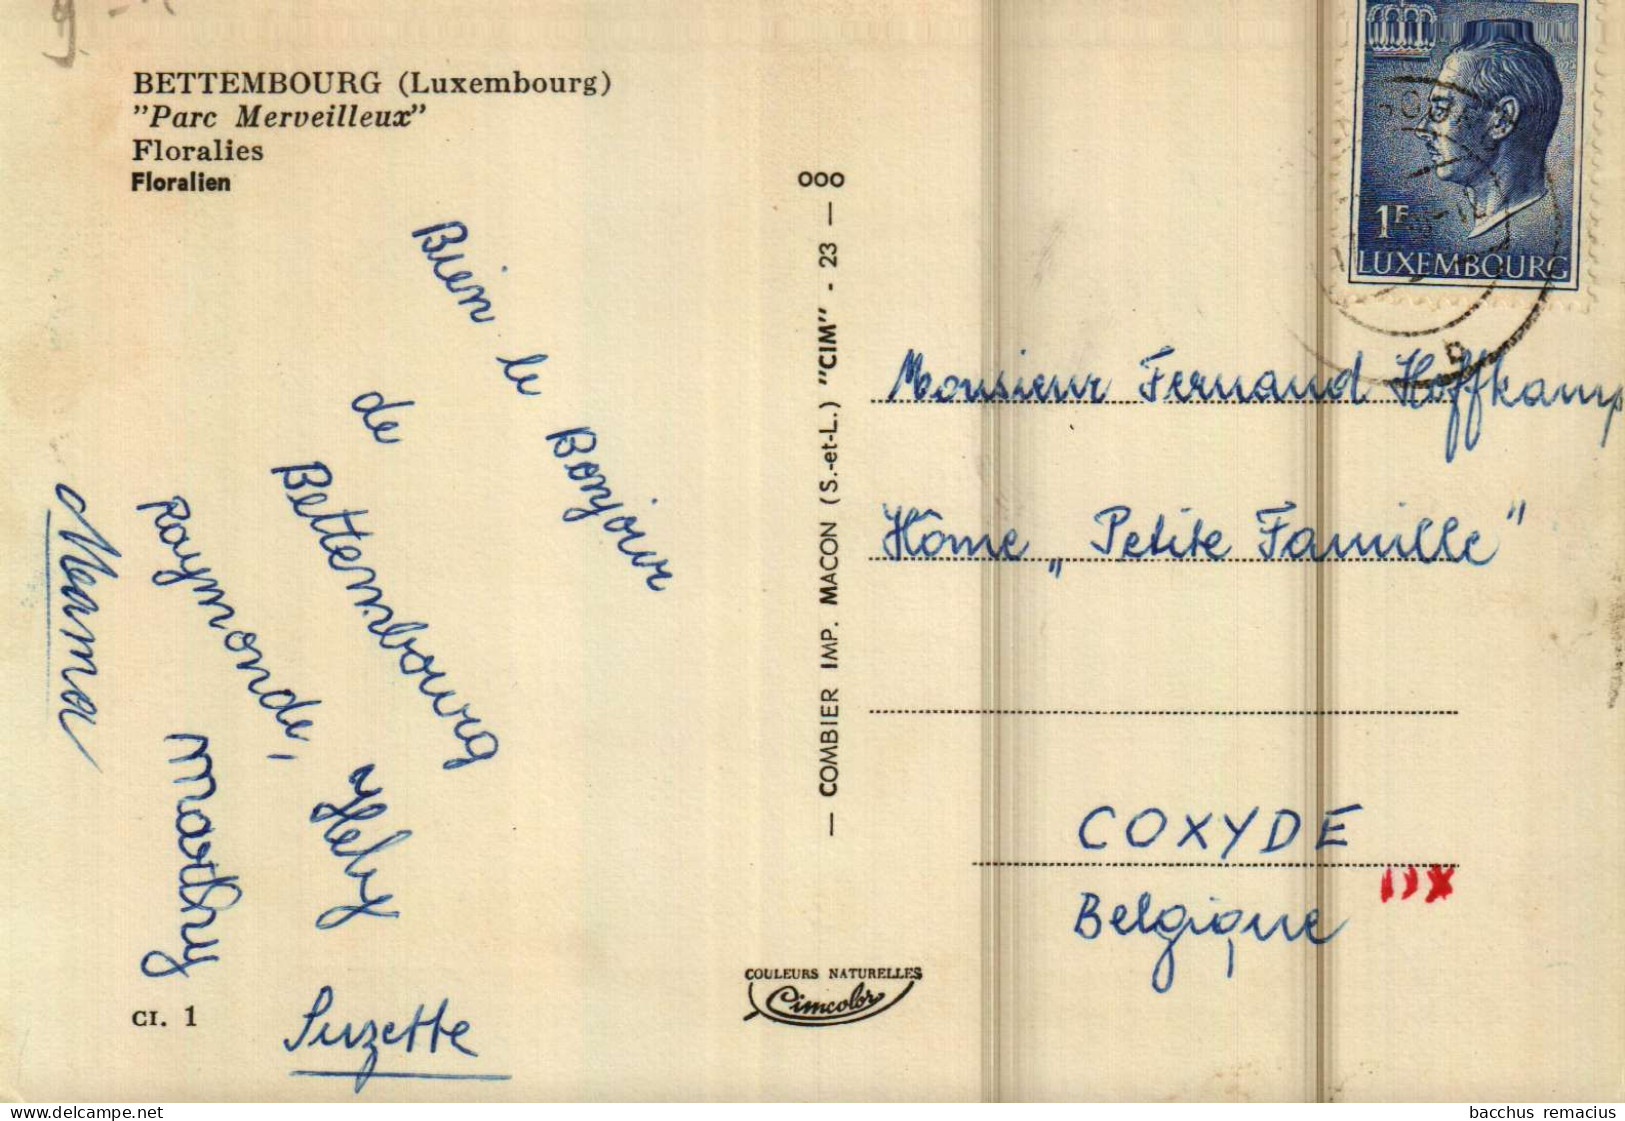 BETTEMBOURG (Luxembourg)
"Parc Merveilleux"
Floralies
Floralien
Bien le Bonjour
de
Bettembourg
Raymonde,
Mama
Marthy
Suzette
CI. 1
— COMBIER IMP. MACON (S.-et-L.) "CIM" - 23 — 000
COULEURS NATURELLES
Cimcolor
1F
LUXEMBOURG
Monsieur Fernand Hoffkamp
Hôme „Petite Famille"
COXYDE
Belgique
delcampe.net
bacchus remacius